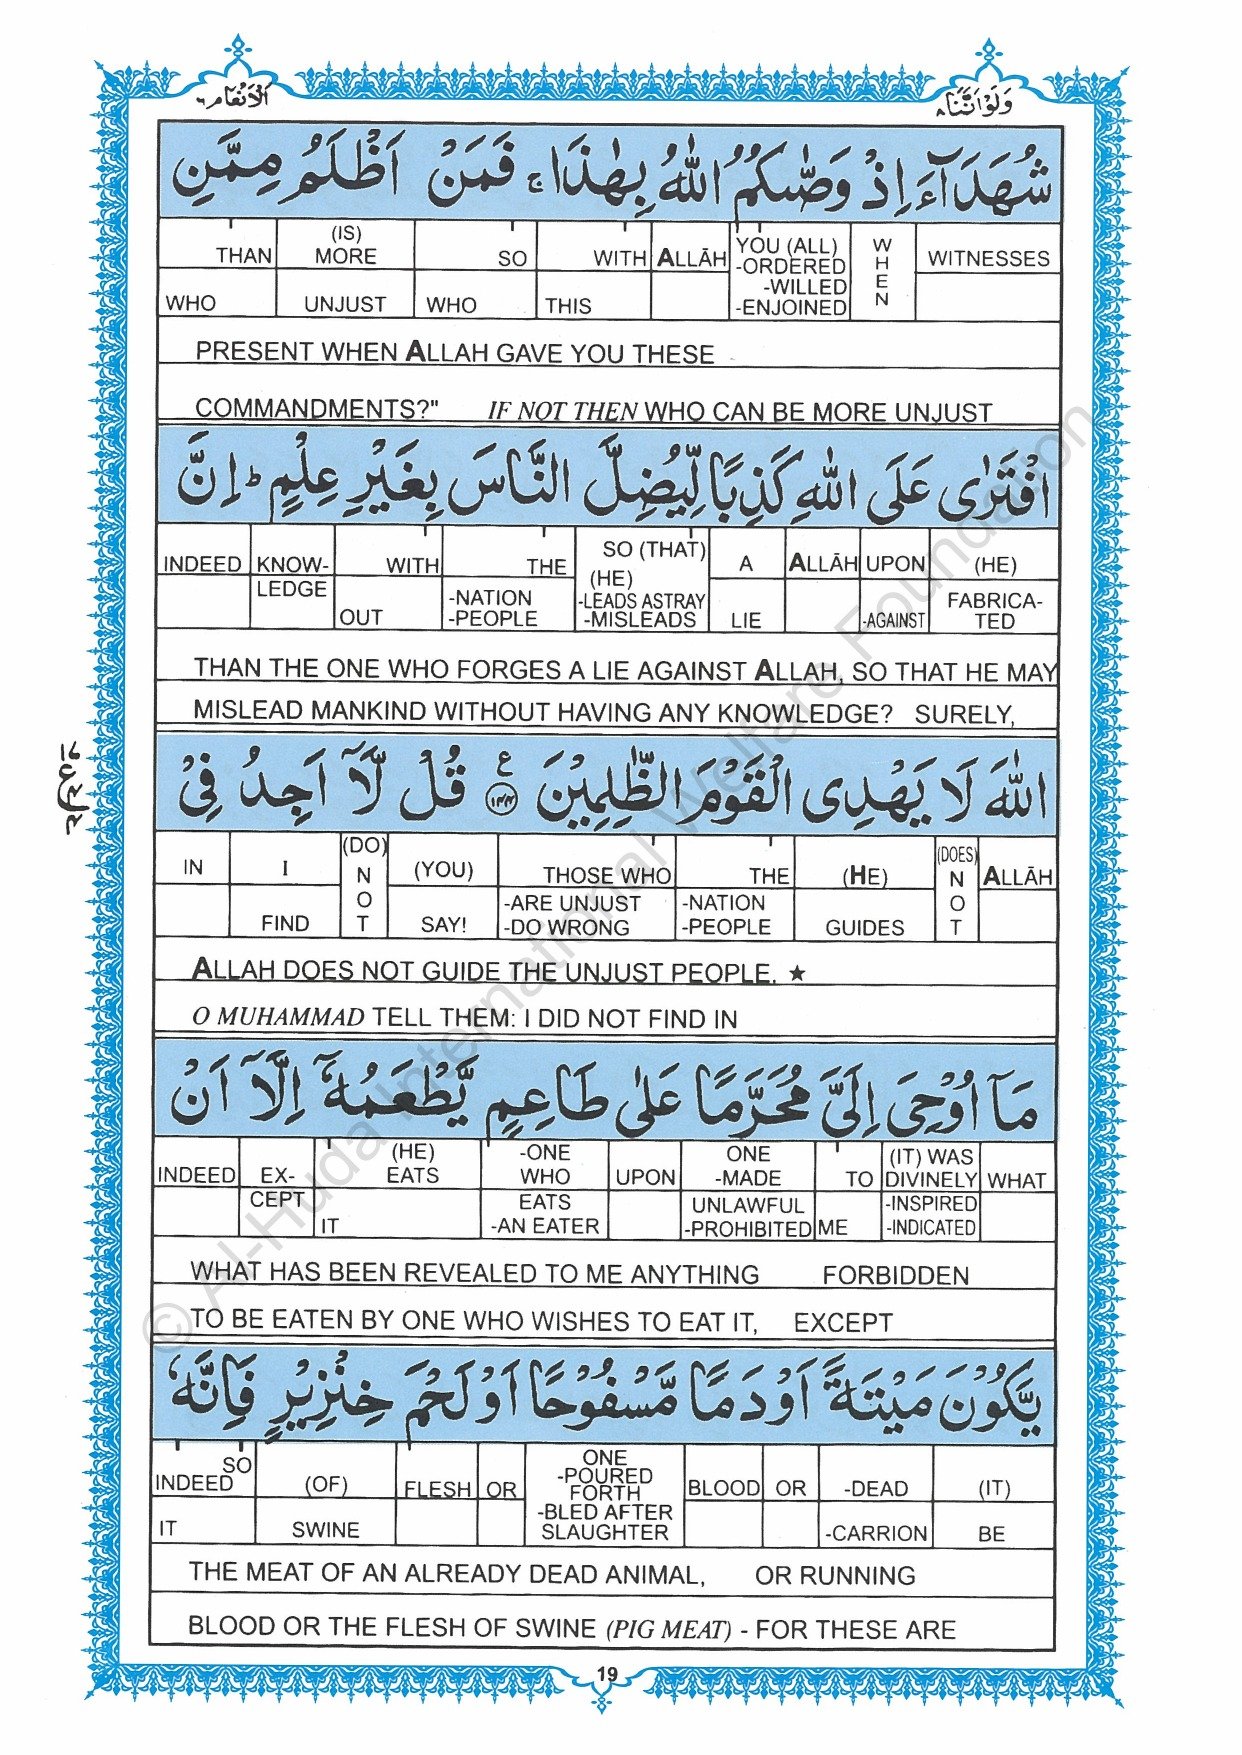 الانعام ٦
ولواننا ٨
شُهَدَآءَ اِذْ وَصّٰىكُمُ اللّٰهُ بِهٰذَا ۚ فَمَنْ اَظْلَمُ مِمَّنِ
THAN (IS) MORE SO WITH ALLĀH YOU (ALL) -ORDERED -WILLED -ENJOINED WHEN WITNESSES
WHO UNJUST WHO THIS
PRESENT WHEN ALLAH GAVE YOU THESE
COMMANDMENTS?" IF NOT THEN WHO CAN BE MORE UNJUST
افْتَرٰى عَلَى اللّٰهِ كَذِبًا لِّيُضِلَّ النَّاسَ بِغَيْرِ عِلْمٍ ؕ اِنَّ
INDEED KNOW- WITH THE SO (THAT) A ALLĀH UPON (HE)
LEDGE OUT -NATION -PEOPLE (HE) -LEADS ASTRAY -MISLEADS LIE -AGAINST FABRICA- TED
THAN THE ONE WHO FORGES A LIE AGAINST ALLAH, SO THAT HE MAY
MISLEAD MANKIND WITHOUT HAVING ANY KNOWLEDGE? SURELY,
اللّٰهَ لَا يَهْدِى الْقَوْمَ الظّٰلِمِيْنَ ۝١٤٤ ع قُلْ لَّآ اَجِدُ فِىْ
IN I (DO) NOT (YOU) THOSE WHO THE (HE) (DOES) NOT ALLĀH
FIND SAY! -ARE UNJUST -DO WRONG -NATION -PEOPLE GUIDES
ALLAH DOES NOT GUIDE THE UNJUST PEOPLE. ★
O MUHAMMAD TELL THEM: I DID NOT FIND IN
مَآ اُوْحِىَ اِلَىَّ مُحَرَّمًا عَلٰى طَاعِمٍ يَّطْعَمُهٗٓ اِلَّآ اَنْ
INDEED EX- (HE) EATS -ONE WHO UPON ONE -MADE TO (IT) WAS DIVINELY WHAT
CEPT IT EATS -AN EATER UNLAWFUL -PROHIBITED ME -INSPIRED -INDICATED
WHAT HAS BEEN REVEALED TO ME ANYTHING FORBIDDEN
TO BE EATEN BY ONE WHO WISHES TO EAT IT, EXCEPT
يَّكُوْنَ مَيْتَةً اَوْ دَمًا مَّسْفُوْحًا اَوْ لَحْمَ خِنْزِيْرٍ فَاِنَّهٗ
SO INDEED (OF) FLESH OR ONE -POURED FORTH -BLED AFTER SLAUGHTER BLOOD OR -DEAD (IT)
IT SWINE -CARRION BE
THE MEAT OF AN ALREADY DEAD ANIMAL, OR RUNNING
BLOOD OR THE FLESH OF SWINE (PIG MEAT) - FOR THESE ARE
19
© Al-Huda International Welfare Foundation